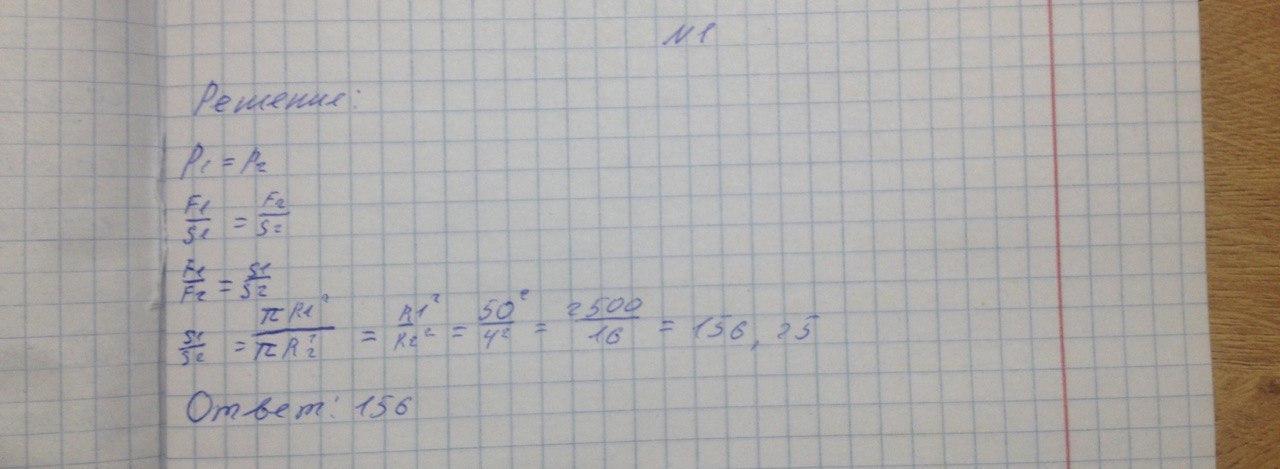 N1
Решение:
P₁ = P₂
F1/S1 = F2/S2
F1/F2 = S1/S2
S1/S2 = πR1²/πR2² = R1²/R2² = 50²/4² = 2500/16 = 156,25
Ответ: 156